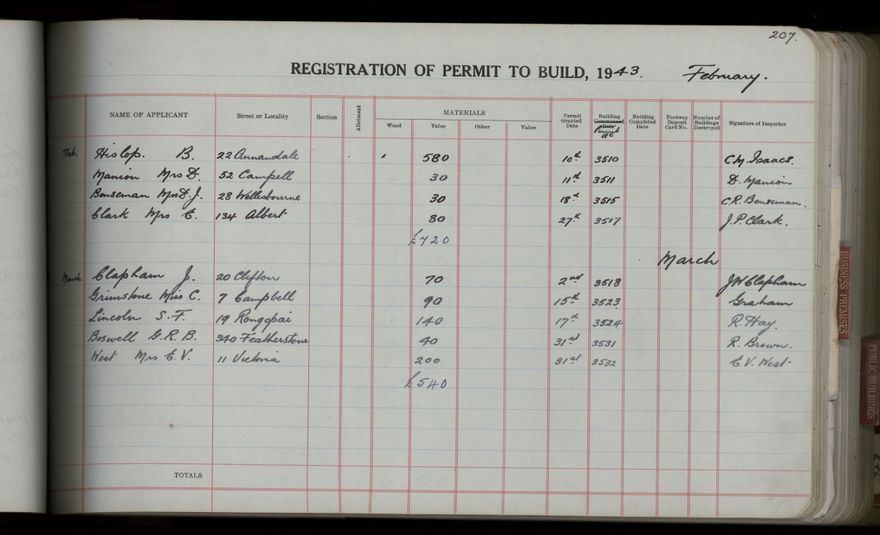 207.
REGISTRATION OF PERMIT TO BUILD, 1943. February.
NAME OF APPLICANT Street or Locality Section Allotment MATERIALS Wood Value Other Value Permit Granted Date Building Commenced Date Permit No Building Completed Date Footway Deposit Card No. Number of Buildings Destroyed Signature of Inspector
Feb. Hislop. B. 22 Annandale 580 10th 3510 C.M. Isaacs.
Manion Mrs D. 52 Campell 30 11th 3511 D. Manion
Benseman Mrs D. J. 28 Wellesbourne 30 18th 3515 C.R. Benseman.
Clark Mrs E. 134 Albert 80 27th 3517 J.P. Clark.
£720
March
March Clapham J. 20 Clifton 70 2nd 3518 J W Clapham
Grimstone Miss C. 7 Campbell 90 15th 3523 Graham
Lincoln S. F. 19 Rongopai 140 17th 3524 R. Hay.
Boswell G. R. B. 340 Featherstone 40 31st 3531 R. Brown.
West Mrs E. V. 11 Victoria 200 31st 3532 E. V. West
£540
TOTALS
BUSINESS PREMISES
PUBLIC BUILDINGS